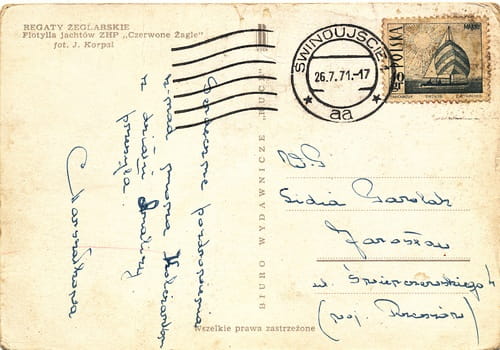 REGATY ŻEGLARSKIE
Flotylla jachtów ZHP „Czerwone Żagle"
fot. J. Korpal
ŚWINOUJŚCIE 1
26.7.71.-17
aa
POLSKA
BIURO WYDAWNICZE „RUCH"
Serdeczne pozdrowienia
z nad morza
z
przesyła
W.P.
Lidia
Jarosław
ul. Świerczewskiego 4
(woj. Rzeszów)
Wszelkie prawa zastrzeżone